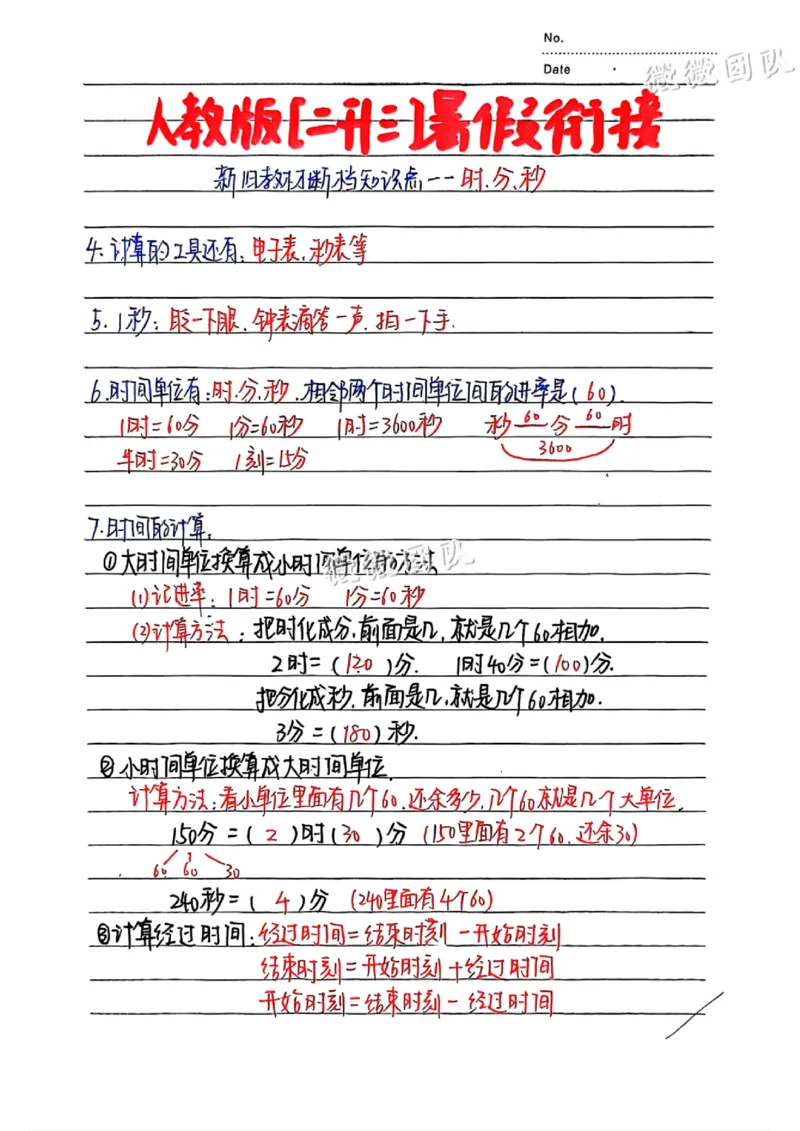 No.
Date
微微团队
人教版[二升三]暑假衔接
新旧教材断档知识点--时、分、秒
4.计算的工具还有:电子表、秒表等
5.1秒:眨一下眼、钟表滴答一声、拍一下手.
6.时间单位有:时、分、秒.相邻两个时间单位间的进率是(60).
1时=60分 1分=60秒 1时=3600秒 秒 60 分 60 时
3600
半时=30分 1刻=15分
7.时间的计算.
①大时间单位换算成小时间单位的方法
微微团队
(1)记进率:1时=60分 1分=60秒
(2)计算方法:把时化成分,前面是几,就是几个60相加.
2时=(120)分. 1时40分=(100)分.
把分化成秒,前面是几,就是几个60相加.
3分=(180)秒.
②小时间单位换算成大时间单位.
计算方法:看小单位里面有几个60,还余多少,几个60就是几个大单位.
150分=(2)时(30)分 (150里面有2个60,还余30)
60 60 30
240秒=(4)分 (240里面有4个60)
③计算经过时间:经过时间=结束时刻-开始时刻
结束时刻=开始时刻+经过时间
开始时刻=结束时刻-经过时间